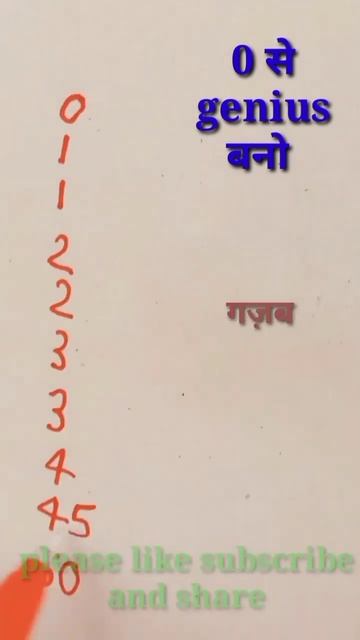 0 से
genius
बनो
0
1
1
2
2
गज़ब
3
3
4
45
please like subscribe
0
and share